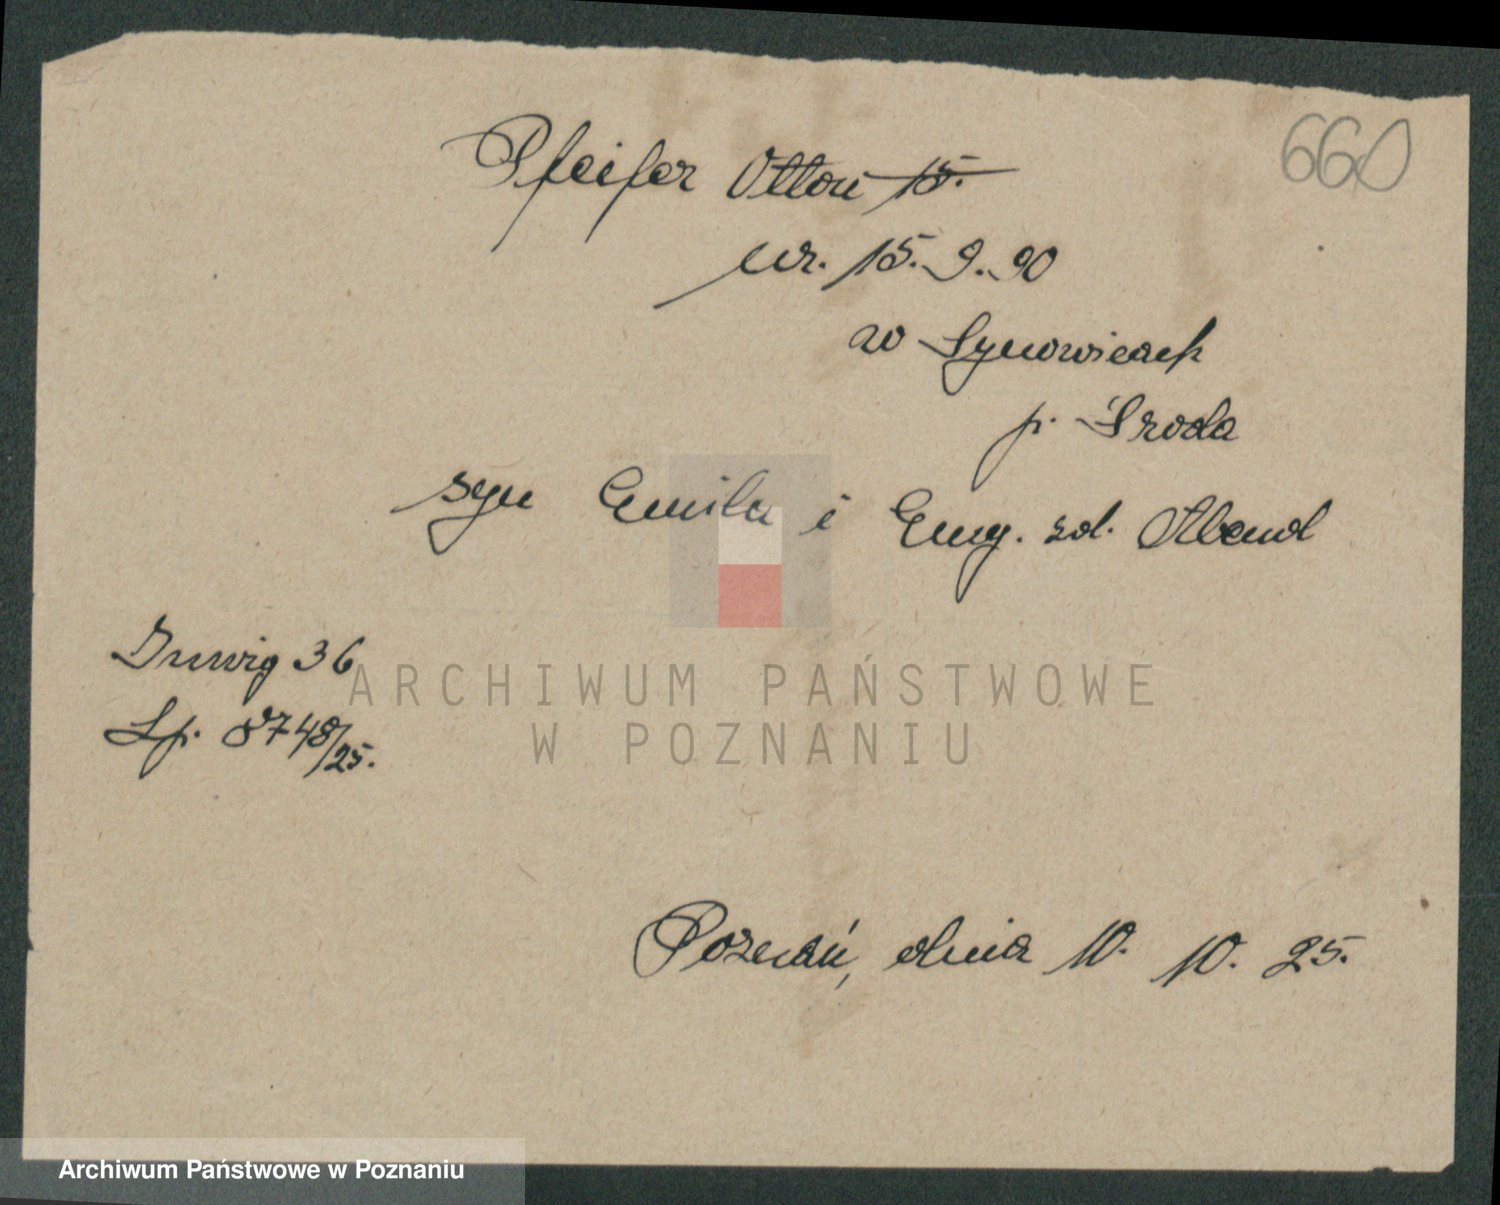 660
Pfeifer Otton 15.
ur. 15. 9. 90
w Synowicach
p. Środa
syn Emila i Emy. zd. Abend
36
Lp. 8748/25.
ARCHIWUM PAŃSTWOWE
W POZNANIU
Poznań, dnia 10. 10. 25.
Archiwum Państwowe w Poznaniu